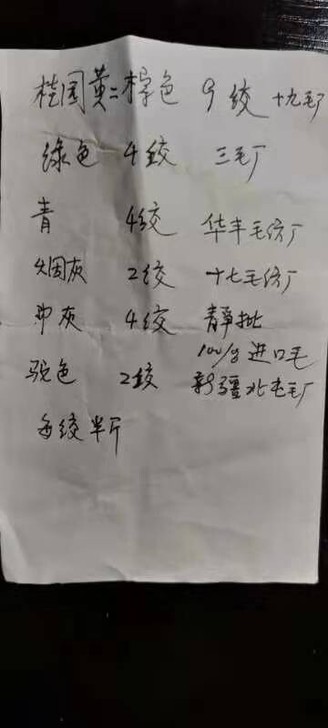 桂圆黄=棕色 9绞 十九毛厂
绿色 4绞 三毛厂
青 4绞 华丰毛纺厂
烟灰 2绞 十七毛纺厂
中灰 4绞 静批
100/g 进口毛
驼色 2绞 新疆北屯毛厂
每绞半斤